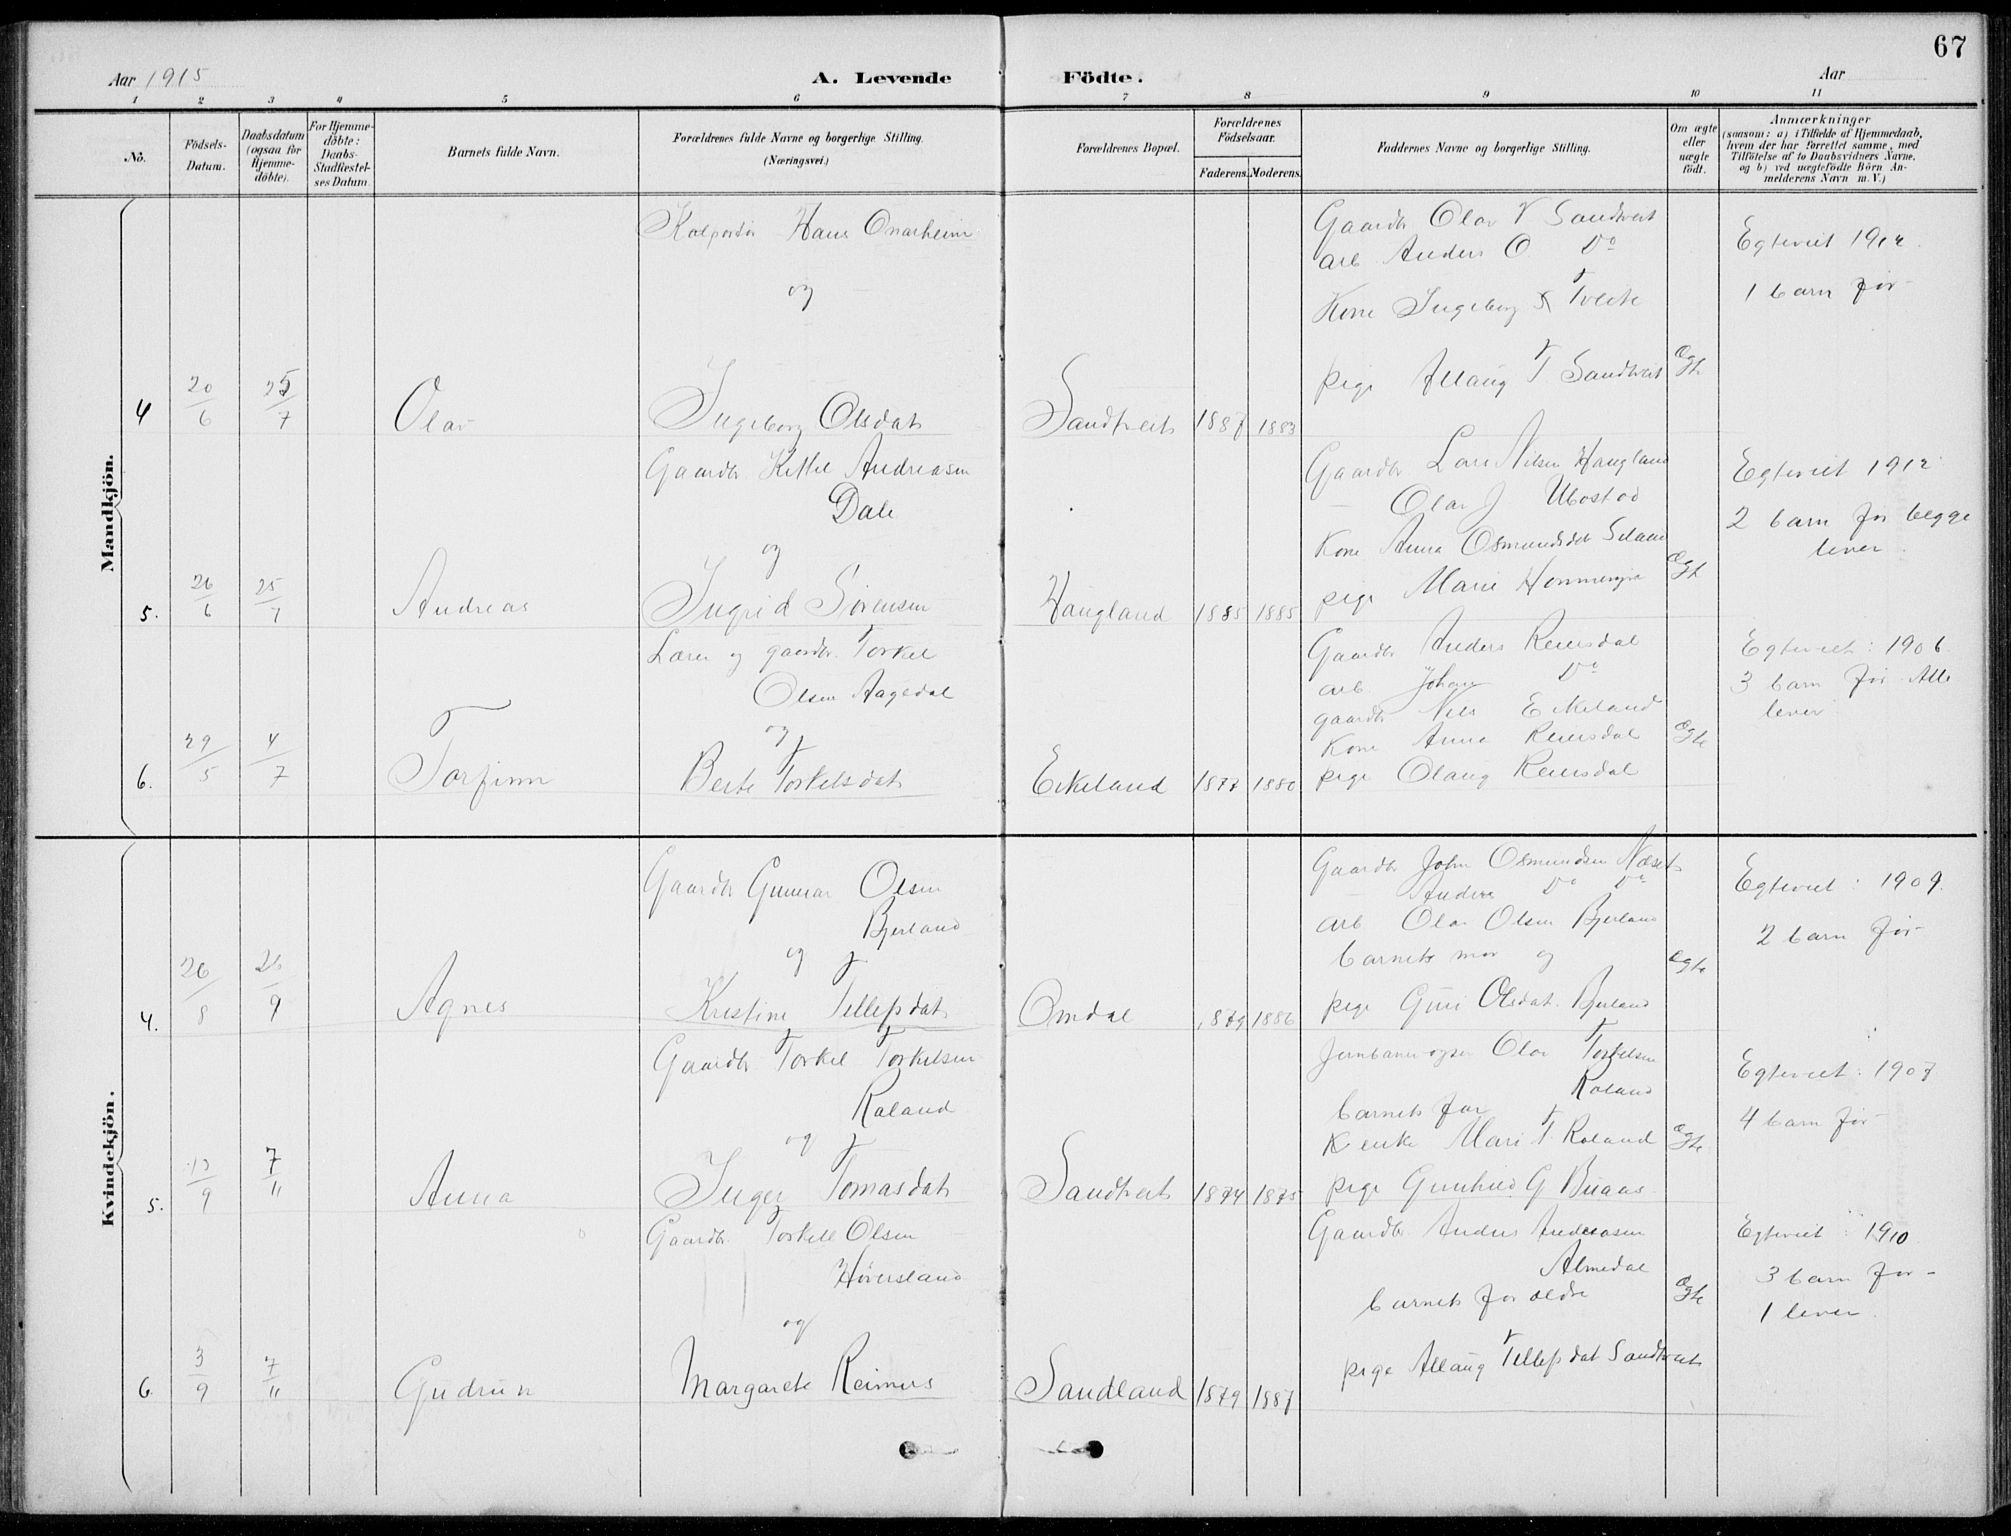 67
Aar 1915
A. Levende Födte.
Aar
1 2 3 4 5 6 7 8 9 10 11
No.
Födsels-Datum.
Daabsdatum (ogsaa for Hjemme-döbte).
For Hjemme-döbte: Daabs-Stadfæstel-ses Datum
Barnets fulde Navn.
Forældrenes fulde Navne og borgerlige Stilling.
(Næringsvei.)
Forældrenes Bopæl.
Forældrenes Födselsaar.
Faderens. Moderens.
Faddernes Navne og borgerlige Stilling.
Om ægte eller uægte födt.
Anmærkninger
(saasom: a) i Tilfælde af Hjemmedaab, hvem der har forrettet samme, med Tilföielse af to Daabsvidners Navne, og b) ved uægtefödte Börn An-melderens Navn m. V.)
Mandkjön.
Kolportör Hans Onarheim
og
Ingeborg Olsdat
4 20/6 25/7 Olav
Sandtveit 1887 1883
Gaardbr Olav V Sandtveit
Arb Anders O Do
Kone Ingeborg Tveite
pige Allaug T Sandtveit
Ægte
Egteviet 1912
1 barn før
Gaardbr Kittel Andreasen
Dale
og
Ingrid Sörensen
5. 26/6 25/7 Andreas
Haugland 1885 1885
Gaardbr Lars Nilsen Haugland
— Olav J Ubostad
Kone Anna Osmundsdat
pige Marie
Ægt
Egteviet 1912
2 barn før begge
lever.
Lærer og gaardbr. Torkel
Olsen Aagedal
og
Berte Torkelsdat
6. 29/5 4/7 Torfinn
Eikeland 1877 1880
Gaardbr Anders Reiersdal
arb Johan Do
gaardbr Nils Eikeland
Kone Anna Reiersdal
pige Olaug Reiersdal
Ægte
Egteviet: 1906
3 barn før Alle
lever
Kvindekjön.
Gaardbr Gunnar Olsen
Bjerland
og
Kristine Tellefsdat
4. 26/8 26/9 Agnes
Omdal 1879 1886
Gaardbr John Osmundsen Næset
— Anders Do Do
arb Olav Olsen Bjerland
barnets mor og
pige Guri Olsdat. Bjerland
Ægte
Egteviet: 1909.
2 barn før
Gaardbr Torkel Torkelsen
Røland
og
Inger Tomasdat
5. 13/9 7/11 Anna
Sandtveit 1874 1875
Olav Torkelsen
Røland
barnets far
Enke Mari T. Røland
pige Gunhild G Buaas
Ægte
Egteviet: 1907
4 barn før
Gaardbr Torkell Olsen
Høversland
og
Margarete Reimers
6 3/9 7/11 Gudrun
Sandland 1879 1887
Gaardbr Anders Andreasen
Almedal
barnets forældre
pige Allaug Tellefsdat Sandtveit
Ægte
Egteviet: 1910
3 barn før -
1 lever.